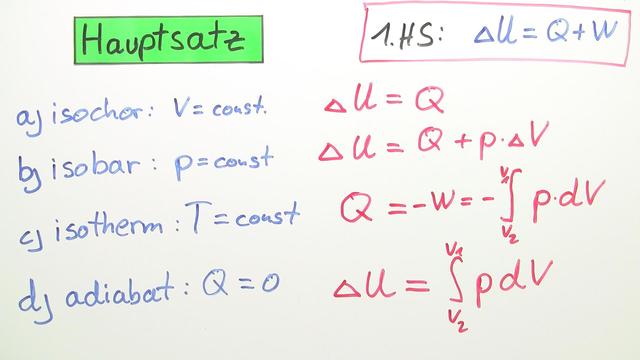 Hauptsatz
1.HS: ΔU = Q + W
a) isochor: V = const. ΔU = Q
b) isobar: p = const ΔU = Q + p·ΔV
c) isotherm: T = const Q = -W = -∫_{V₂}^{V₁} p·dV
d) adiabat: Q = 0 ΔU = ∫_{V₂}^{V₁} p dV